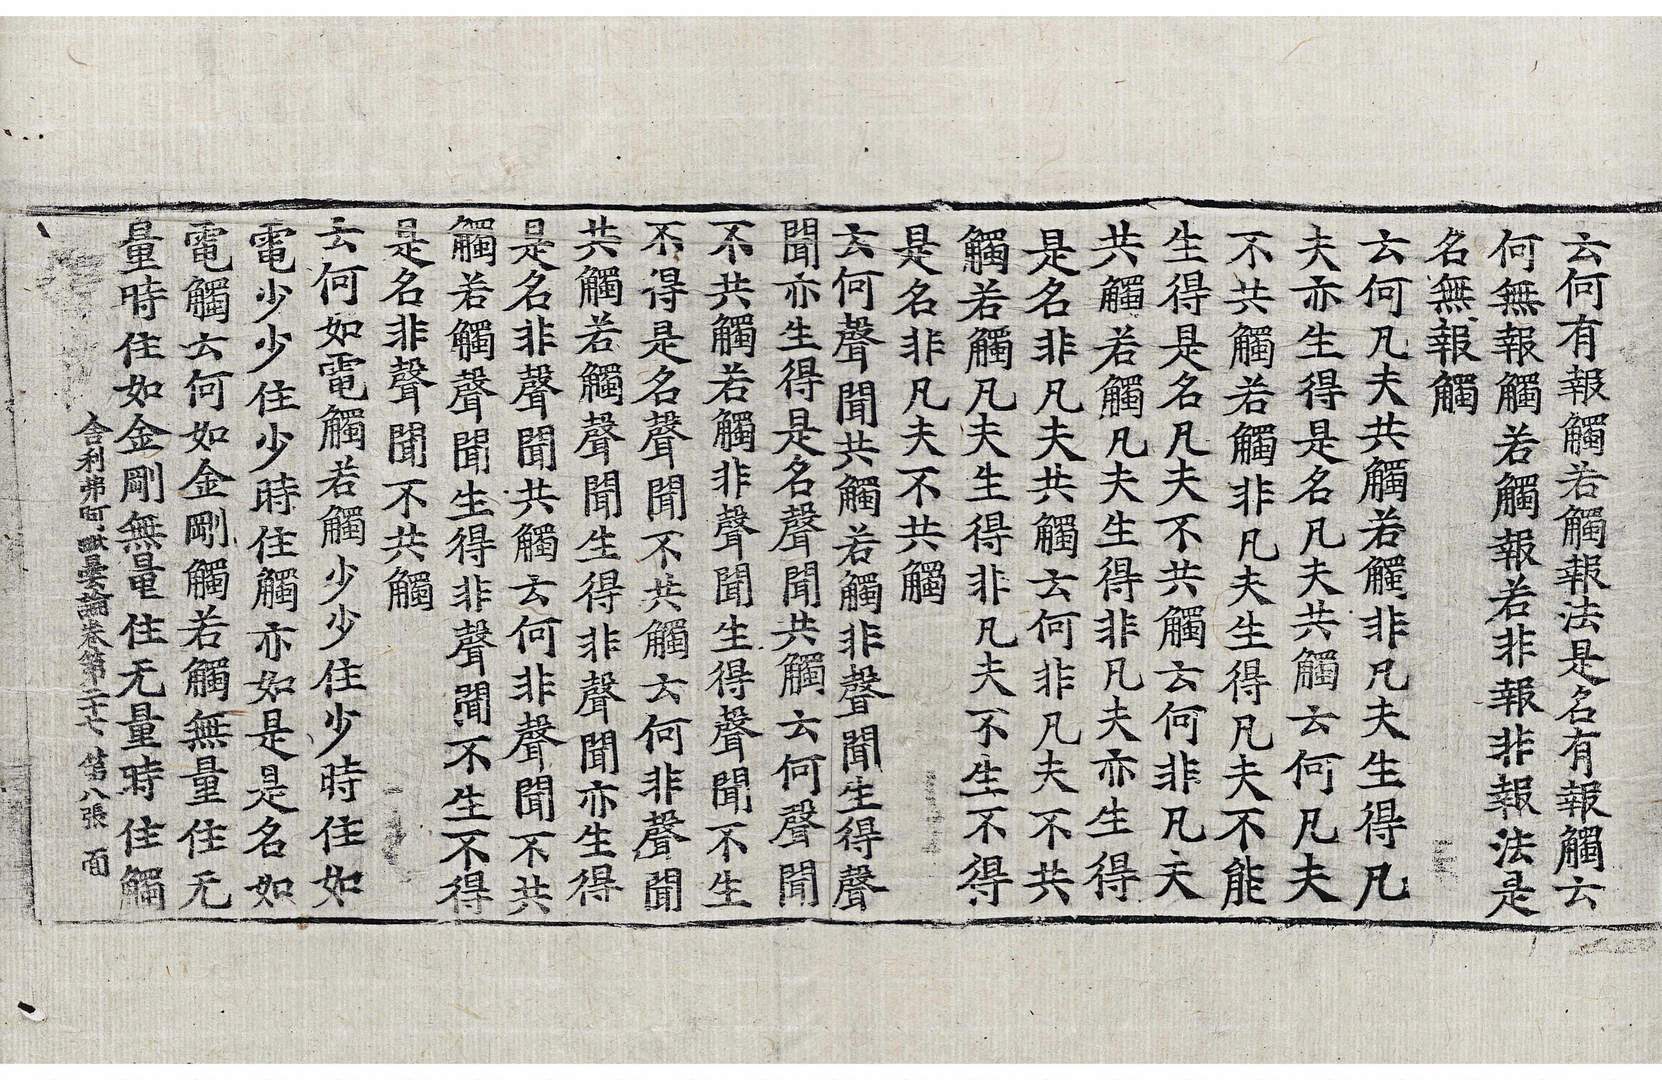 云何有報觸若觸報法是名有報觸云
何無報觸若觸報若非報非報法是
名無報觸
云何凡夫共觸若觸非凡夫生得凡
夫亦生得是名凡夫共觸云何凡夫
不共觸若觸非凡夫生得凡夫不能
生得是名凡夫不共觸云何非凡夫
共觸若觸凡夫生得非凡夫亦生得
是名非凡夫共觸云何非凡夫不共
觸若觸凡夫生得非凡夫不生不得
是名非凡夫不共觸
云何聲聞共觸若觸非聲聞生得聲
聞亦生得是名聲聞共觸云何聲聞
不共觸若觸非聲聞生得聲聞不生
不得是名聲聞不共觸云何非聲聞
共觸若觸聲聞生得非聲聞亦生得
是名非聲聞共觸云何非聲聞不共
觸若觸聲聞生得非聲聞不生不得
是名非聲聞不共觸
云何如電觸若觸少少住少時住如
電少少住少時住觸亦如是是名如
電觸云何如金剛觸若觸無量住无
量時住如金剛無量住无量時住觸
舍利弗阿毗曇論卷第二十七 第八張 面